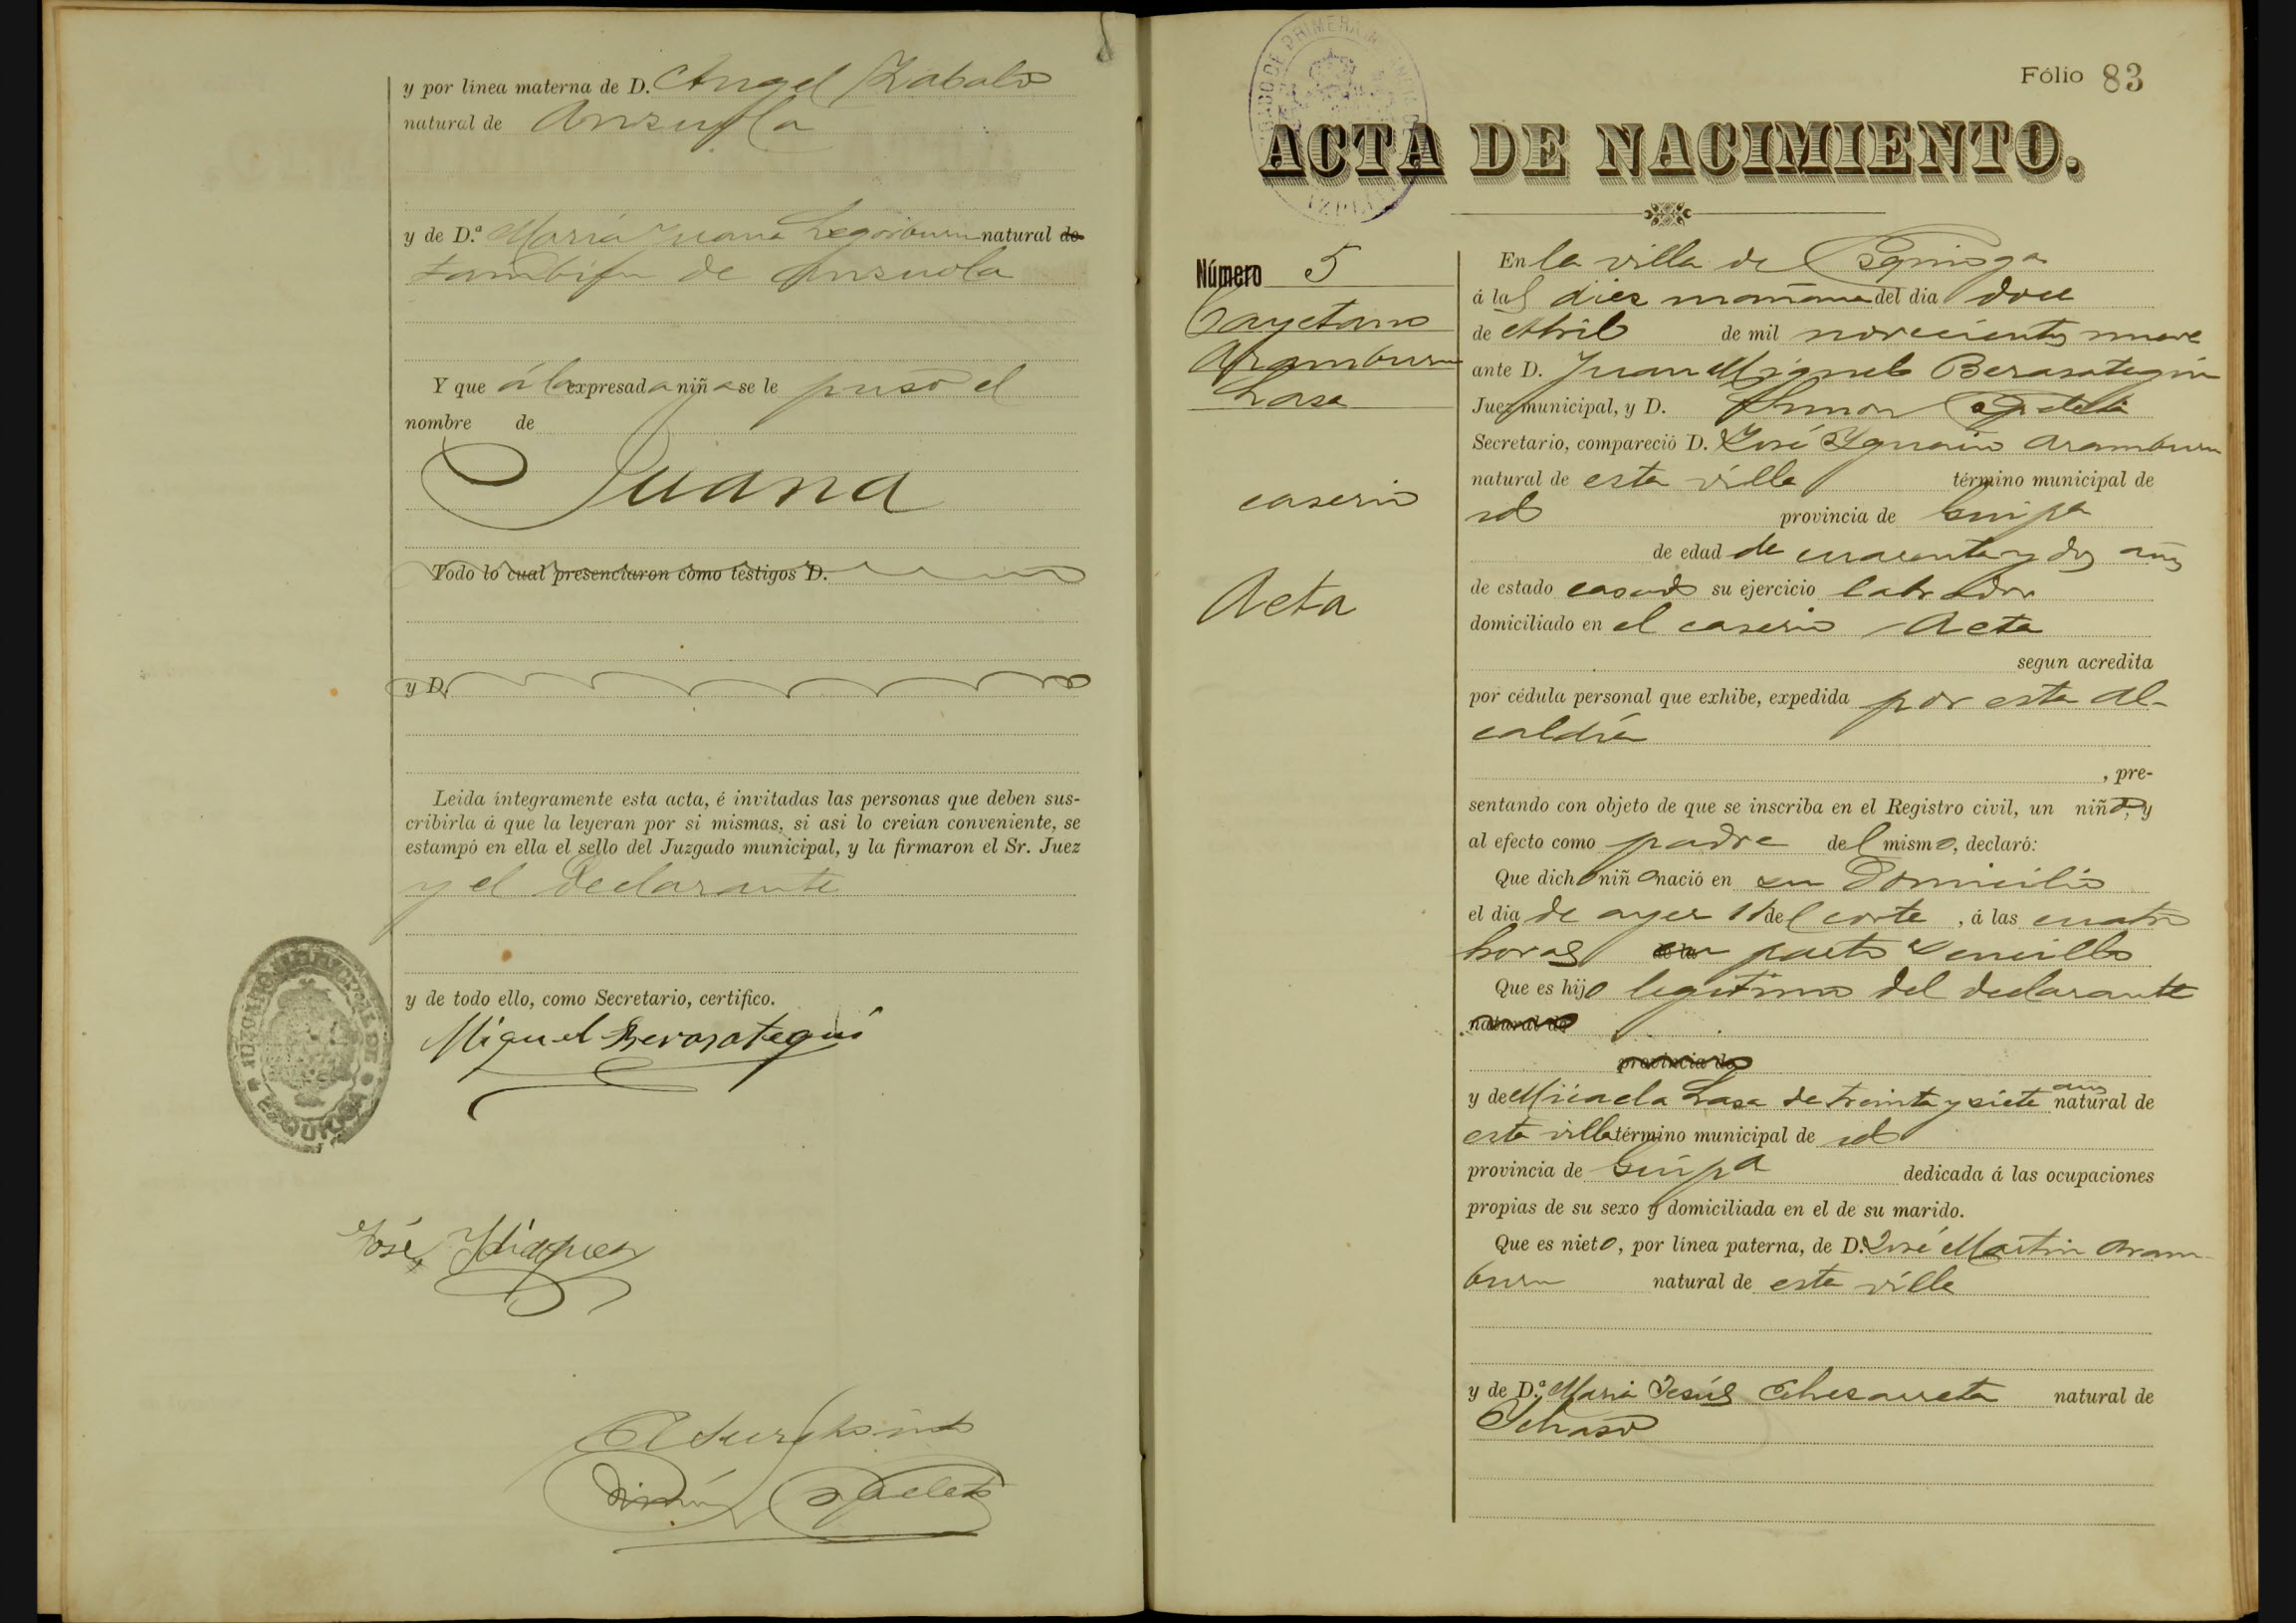 y por línea materna de D. Angel Zabalo
natural de Anzuola
y de D.ª María Juana Legorburu natural de
también de Anzuola
Y que á la expresada niña se le puso el
nombre de
Juana
Todo lo cual presenciaron como testigos D.
y D.
Leida íntegramente esta acta, é invitadas las personas que deben sus-
cribirla á que la leyeran por si mismas, si asi lo creian conveniente, se
estampó en ella el sello del Juzgado municipal, y la firmaron el Sr. Juez
y el declarante
y de todo ello, como Secretario, certifico.
Miguel Berasategui
José
Simón
Fólio 83
ACTA DE NACIMIENTO.
Número 5
Cayetano
Aramburu
Lasa
caserio
Acta
En la villa de Ezquioga
á las diez mañana del dia doce
de Abril de mil novecientos nueve
ante D. Juan Miguel Berasategui
Juez municipal, y D. Simon
Secretario, compareció D. José Ygnacio Aramburu
natural de esta villa término municipal de
id provincia de Guipª
de edad de cuarenta y dos años
de estado casado su ejercicio labrador
domiciliado en el caserio Acta
segun acredita
por cédula personal que exhibe, expedida por esta Al-
caldía
, pre-
sentando con objeto de que se inscriba en el Registro civil, un niño, y
al efecto como padre del mismo, declaró:
Que dicho niño nació en su domicilio
el dia de ayer 11 del corte , á las cuatro
horas parto sencillo
Que es hijo legitimo del declarante
natural de
provincia de
y de Micaela Lasa de treinta y siete años natural de
esta villa término municipal de id
provincia de Guipª dedicada á las ocupaciones
propias de su sexo y domiciliada en el de su marido.
Que es nieto, por línea paterna, de D. José Martin Aram-
buru natural de esta villa
y de D.ª Maria Jesús Echezarreta natural de
Ichaso